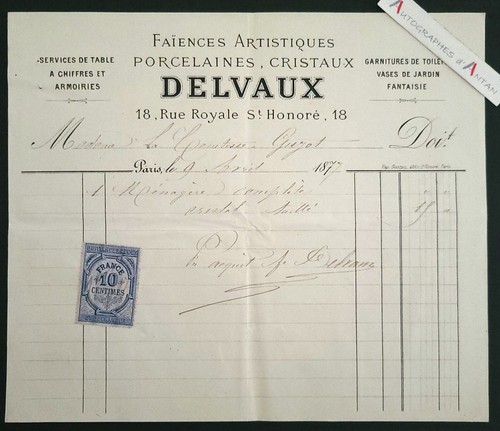 Autographes d'Antan
Faïences Artistiques
Porcelaines, Cristaux
DELVAUX
18, Rue Royale St Honoré, 18
SERVICES DE TABLE
A CHIFFRES ET
ARMOIRIES
GARNITURES DE TOILET
VASES DE JARDIN
FANTAISIE
Madame La Comtesse Doit
Paris, le 9 Avril 1877
1 Ménagère complète
cristal taillé 15
Pr acquit Delvaux
FRANCE
10
CENTIMES